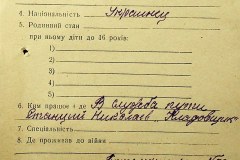 4. Національність Украинец
5. Родинний стан
при ньому діти до 16 років:
1)
2)
3)
4)
5)
6. Ким працює і де В службе пути
станции Николаев "Кладовщик"
7. Спеціальність
8. Де проживав до війни